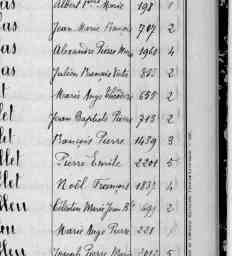 as Albert Marie 198 1
as Jean Marie François 707 2
as Alexandre Pierre Marie 1968 4
as Julien François 2
Marie Ange 655 2
llet Jean Baptiste Pierre 713 2
llet François Pierre 1439 3
llet Pierre Emile 2201 5
let Noël François 1837 4
lleu Célestin Marie Jean Bte 2
lleu Marie Ange Pierre 221 1
lleu Joseph Pierre Marie 5